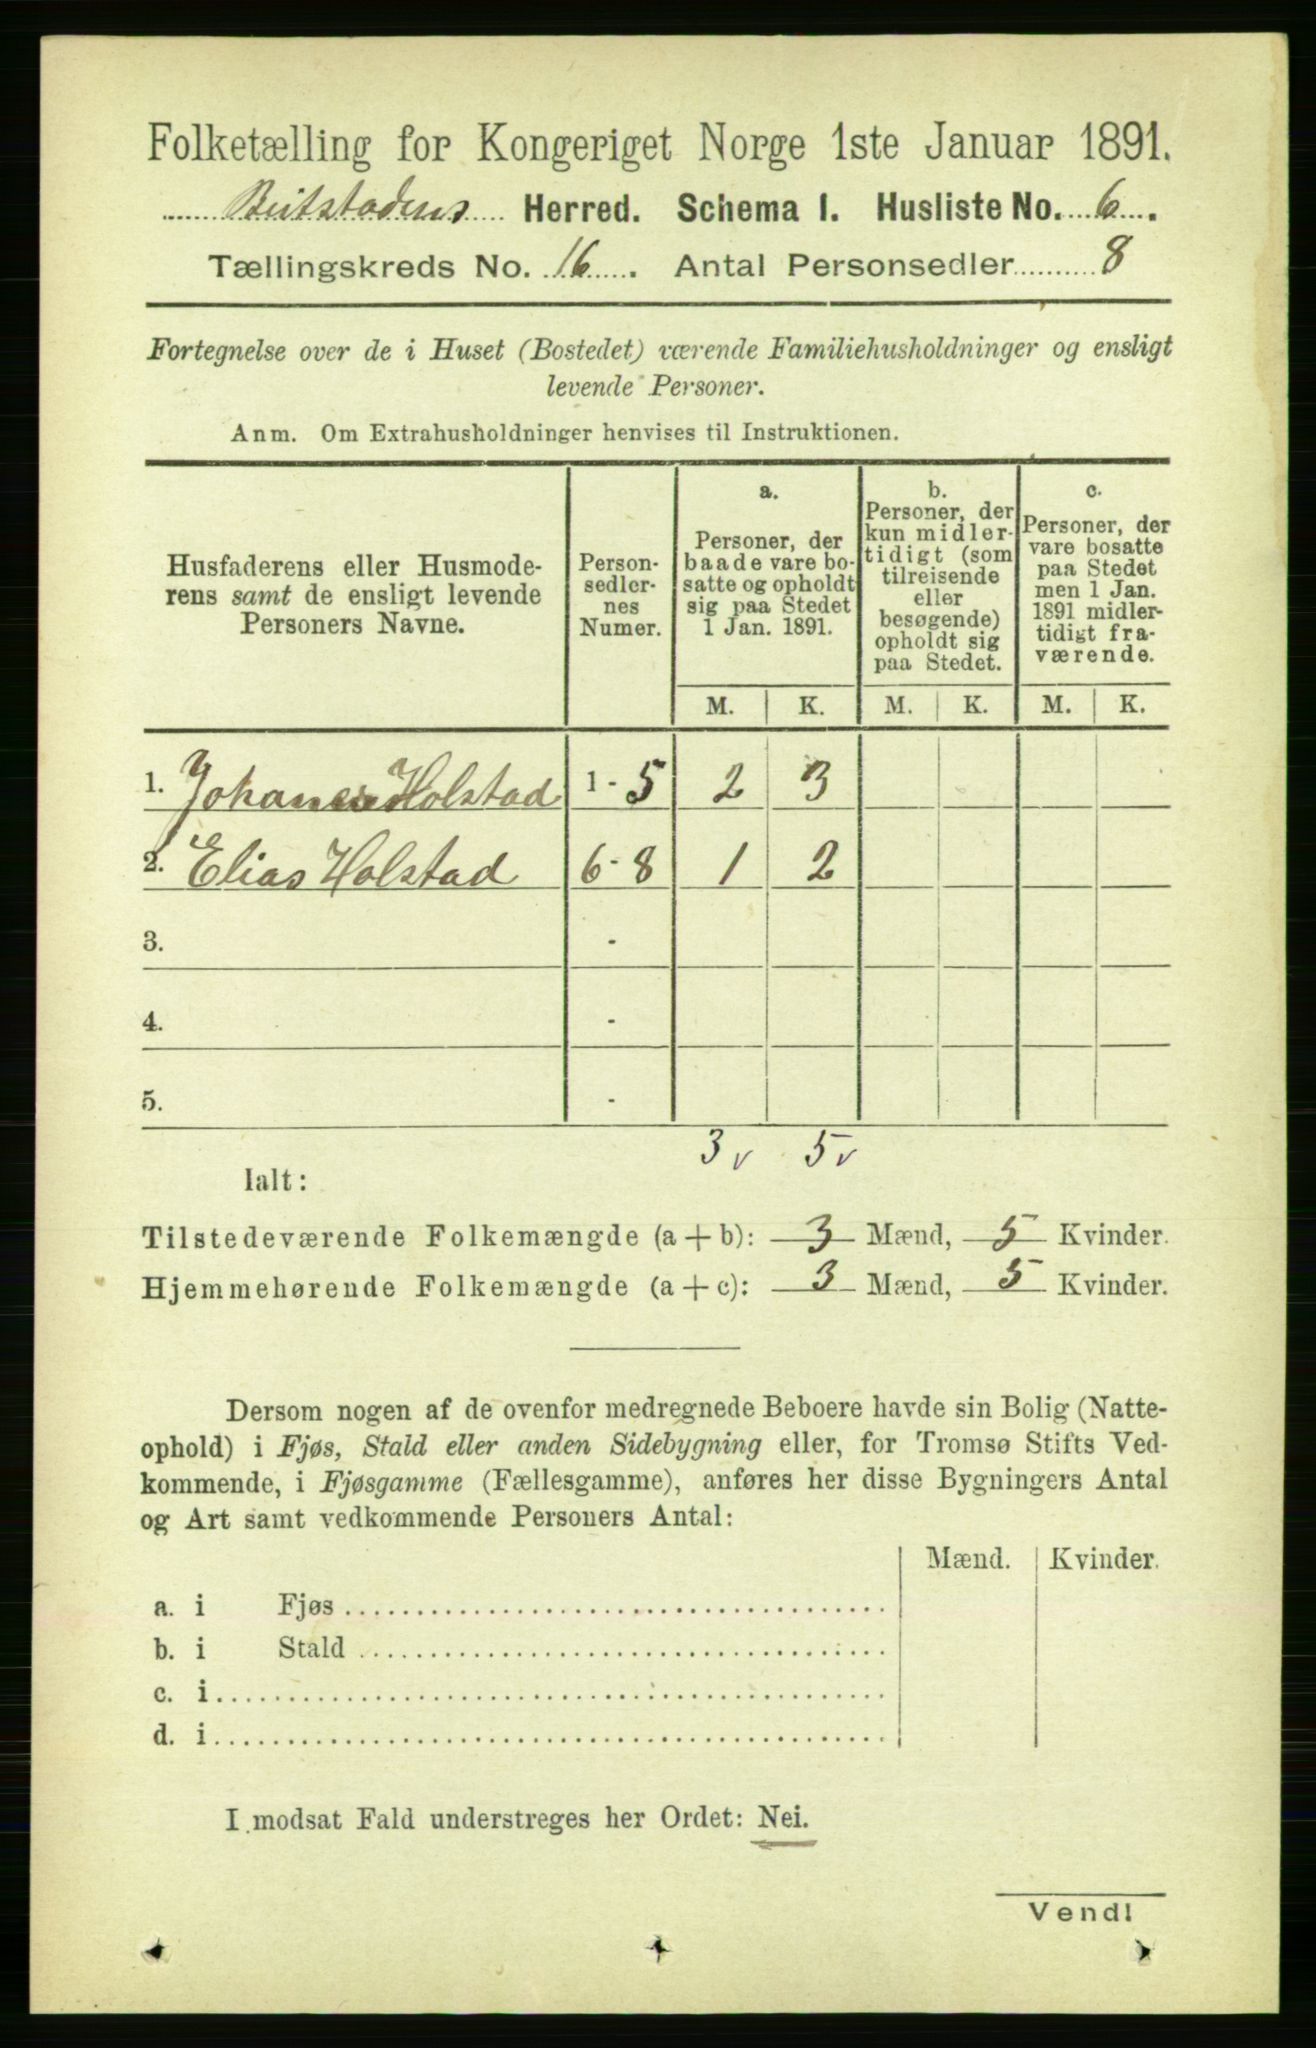 Folketælling for Kongeriget Norge 1ste Januar 1891.
Beitstadens Herred. Schema 1. Husliste No. 6.
Tællingskreds No. 16. Antal Personsedler 8
Fortegnelse over de i Huset (Bostedet) værende Familiehusholdninger og ensligt
levende Personer.
Anm. Om Extrahusholdninger henvises til Instruktionen.
Husfaderens eller Husmode-
rens samt de ensligt levende
Personers Navne.
Person-
sedler-
nes
Numer.
a.
Personer, der
baade vare bo-
satte og opholdt
sig paa Stedet
1 Jan. 1891.
b.
Personer, der
kun midler-
tidigt (som
tilreisende
eller
besøgende)
opholdt sig
paa Stedet.
c.
Personer, der
vare bosatte
paa Stedet
men 1 Jan.
1891 midler-
tidigt fra-
værende.
M. K. M. K. M. K.
1. Johannes Holstad 1-5 2 3
2. Elias Holstad 6-8 1 2
3. -
4. -
5. -
3 v 5 v
Ialt:
Tilstedeværende Folkemængde (a + b): 3 Mænd, 5 Kvinder.
Hjemmehørende Folkemængde (a + c): 3 Mænd, 5 Kvinder.
Dersom nogen af de ovenfor medregnede Beboere havde sin Bolig (Natte-
ophold) i Fjøs, Stald eller anden Sidebygning eller, for Tromsø Stifts Ved-
kommende, i Fjøsgamme (Fællesgamme), anføres her disse Bygningers Antal
og Art samt vedkommende Personers Antal:
Mænd. Kvinder.
a. i Fjøs
b. i Stald
c. i
d. i
I modsat Fald understreges her Ordet: Nei.
Vend!